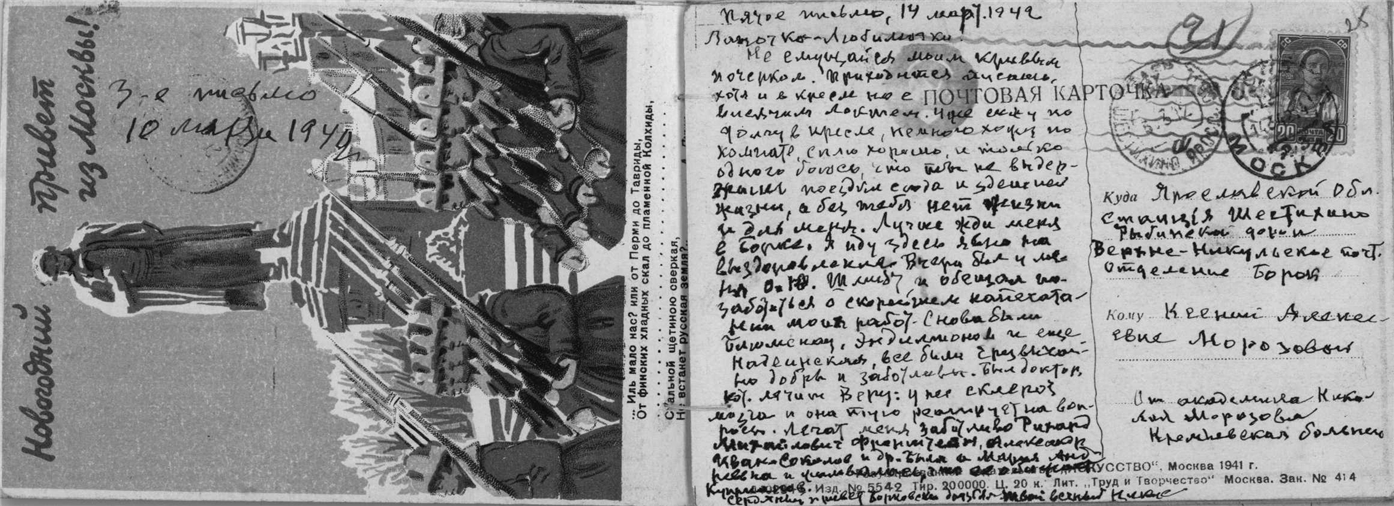 Новогодний привет
из Москвы!
3-е письмо
10 марта 1942
... Иль мало нас? или от Перми до Тавриды,
От финских хладных скал до пламенной Колхиды,
Стальной щетиною сверкая,
Не встанет русская земля?..
письмо, 14 март. 1942
Не смущайся моим кривым
почерком. Приходится писать,
хотя и в кресле но с
ПОЧТОВАЯ КАРТОЧКА
висячим локтем. Уже сижу по
долгу в кресле, немного хожу по
комнате, сплю хорошо, и только
одного боюсь, что ты не выдер-
жишь поездки сюда и здешней
жизни, а без тебя нет жизни
и для меня. Лучше жди меня
в Борке. Я иду здесь явно на
выздоровление. Вчера был у ме-
ня О.Ю. Шмидт и обещал по-
заботиться о скорейшем напечата-
нии моих работ. Снова были
и еще
все были чрезвычай-
но добры и заботливы. Был доктор
кот. лечит Веру: у нее склероз
мозга и она туго реагирует на воп-
росы. Лечат меня заботливо Рихард
Михайлович Александр
Иванович Соколов и др. Была и Мария Анд-
реевна и
твой вечный
20 ПОЧТА 20
МОСКВА
Куда Ярославской Обл.
станция Шестихино
Рыбинской дороги
Верхне-Никульское почт.
отделение Борок
Кому Ксении Алексе-
евне Морозовой
От академика Нико-
лая Морозова
Кремлевская больница
ИСКУССТВО". Москва 1941 г.
Изд. № 5542 Тир. 200000. Ц. 20 к. Лит. „Труд и Творчество" Москва. Зак. № 414